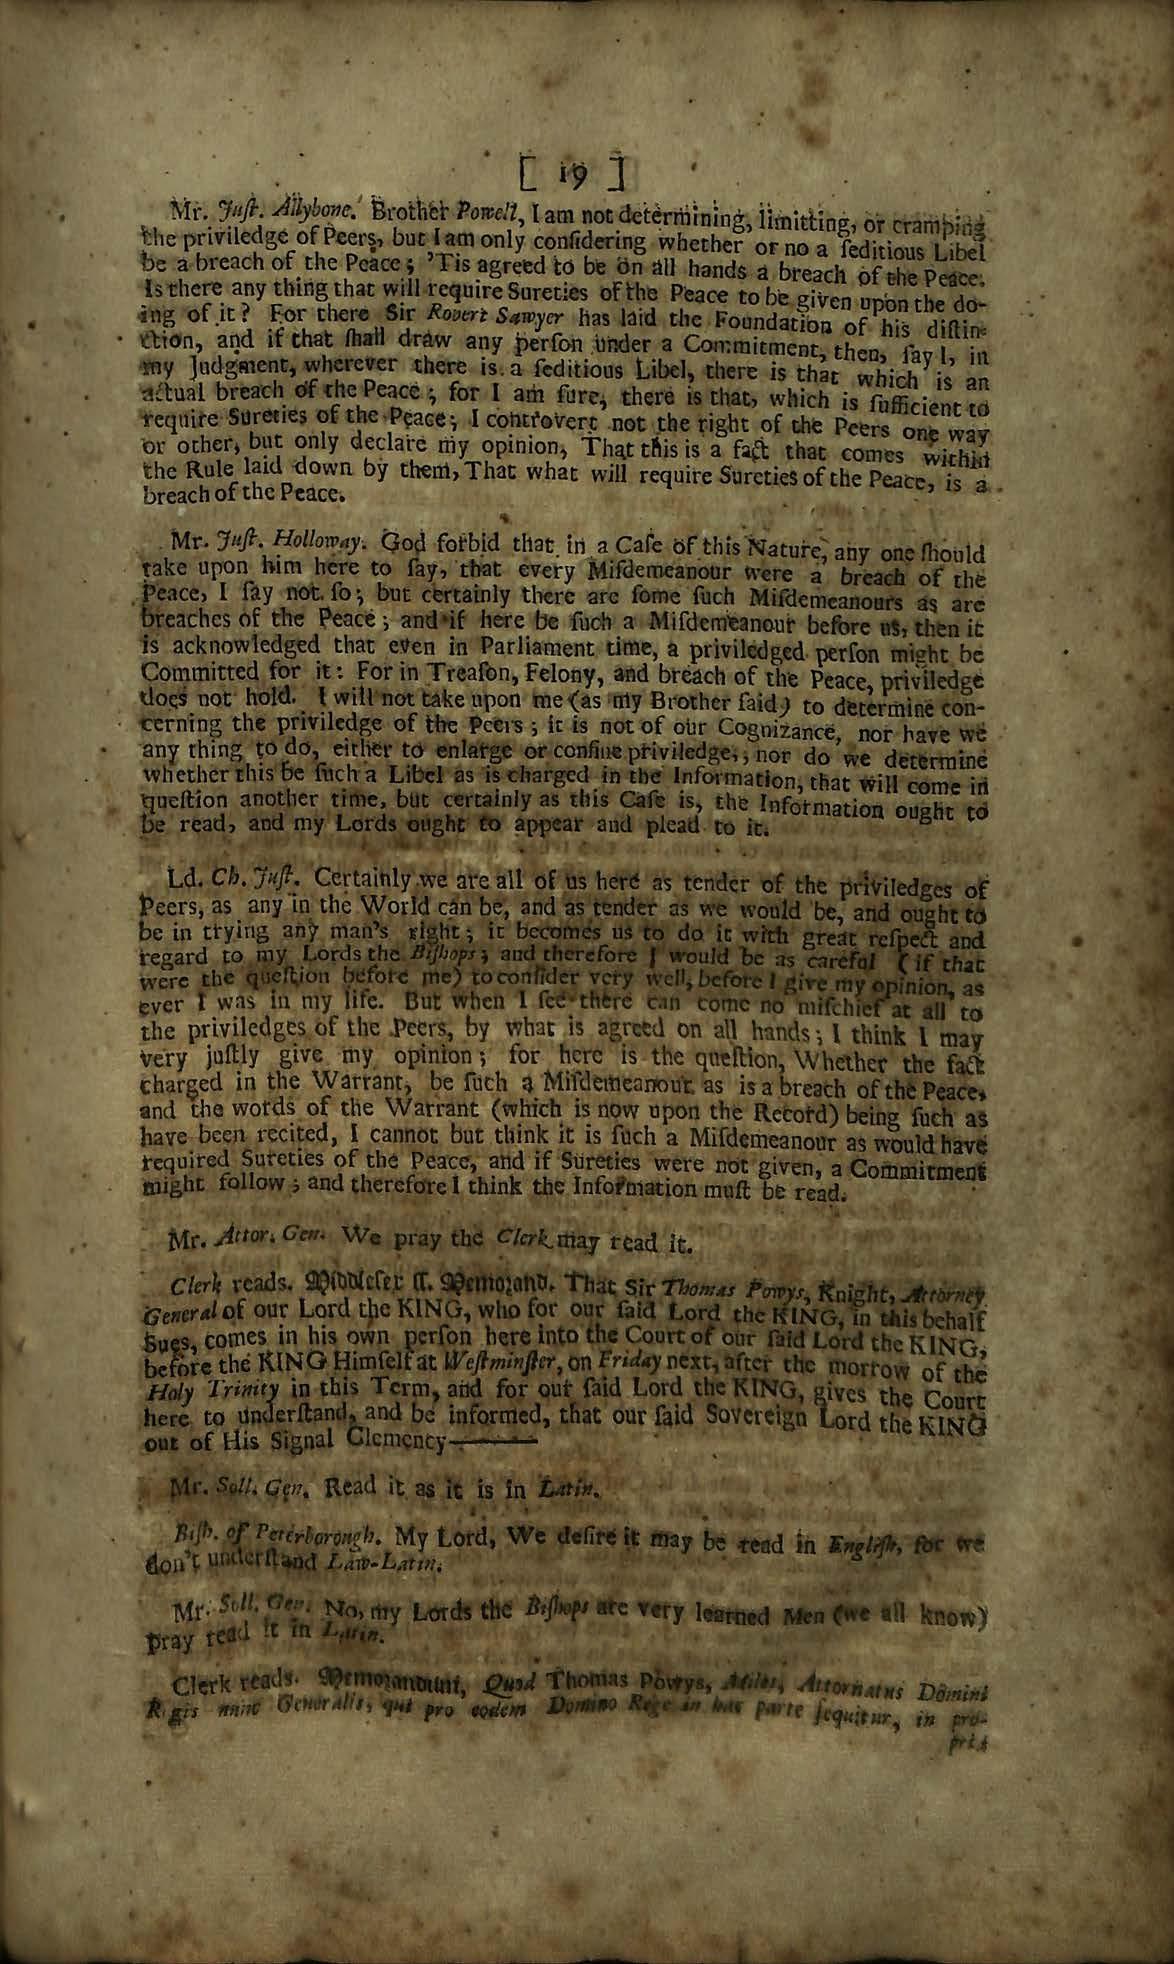 [ 19 ]
Mr. Juſt. Allybone. Brother Powell, I am not determining, limitting, or cramping
the priviledge of Peers, but I am only conſidering whether or no a ſeditious Libel
be a breach of the Peace; 'Tis agreed to be on all hands a breach of the Peace.
Is there any thing that will require Sureties of the Peace to be given upon the do-
ing of it? For there Sir Robert Sawyer has laid the Foundation of his diſtin-
ction, and if that ſhall draw any perſon under a Commitment, then, ſay I, in
my Judgment, wherever there is a ſeditious Libel, there is that which is an
actual breach of the Peace; for I am ſure, there is that, which is ſufficient to
require Sureties of the Peace; I controvert not the right of the Peers one way
or other, but only declare my opinion, That this is a fact that comes within
the Rule laid down by them, That what will require Sureties of the Peace, is a
breach of the Peace.
Mr. Juſt. Holloway. God forbid that in a Caſe of this Nature, any one ſhould
take upon him here to ſay, that every Miſdemeanour were a breach of the
Peace, I ſay not ſo; but certainly there are ſome ſuch Miſdemeanours as are
breaches of the Peace; and if here be ſuch a Miſdemeanour before us, then it
is acknowledged that even in Parliament time, a priviledged perſon might be
Committed for it: For in Treaſon, Felony, and breach of the Peace, priviledge
does not hold. I will not take upon me (as my Brother ſaid) to determine con-
cerning the priviledge of the Peers; it is not of our Cognizance, nor have we
any thing to do, either to enlarge or confine priviledge, nor do we determine
whether this be ſuch a Libel as is charged in the Information, that will come in
queſtion another time, but certainly as this Caſe is, the Information ought to
be read, and my Lords ought to appear and plead to it.
Ld. Ch. Juſt. Certainly we are all of us here as tender of the priviledges of
Peers, as any in the World can be, and as tender as we would be, and ought to
be in trying any man's right; it becomes us to do it with great reſpect and
regard to my Lords the Biſhops; and therefore I would be as careful (if that
were the queſtion before me) to conſider very well, before I give my opinion, as
ever I was in my life. But when I ſee there can come no miſchief at all to
the priviledges of the Peers, by what is agreed on all hands; I think I may
very juſtly give my opinion; for here is the queſtion, Whether the fact
charged in the Warrant, be ſuch a Miſdemeanour as is a breach of the Peace,
and the words of the Warrant (which is now upon the Record) being ſuch as
have been recited, I cannot but think it is ſuch a Miſdemeanour as would have
required Sureties of the Peace, and if Sureties were not given, a Commitment
might follow; and therefore I think the Information muſt be read.
Mr. Attor. Gen. We pray the Clerk may read it.
Clerk reads. Middleſex ſſ. Memorand. That Sir Thomas Powys, Knight, Attorney
General of our Lord the KING, who for our ſaid Lord the KING, in this behalf
Sues, comes in his own perſon here into the Court of our ſaid Lord the KING,
before the KING Himſelf at Weſtminſter, on Friday next, after the morrow of the
Holy Trinity in this Term, and for our ſaid Lord the KING, gives the Court
here to underſtand, and be informed, that our ſaid Sovereign Lord the KING
out of His Signal Clemency———
Mr. Soll. Gen. Read it as it is in Latin.
Biſh. of Peterborough. My Lord, We deſire it may be read in Engliſh, for we
don't underſtand Law-Latin.
Mr. Soll. Gen. No, my Lords the Biſhops are very learned Men (we all know)
pray read it in Latin.
Clerk reads. Memorandum, Quod Thomas Powys, Miles, Attornatus Domini
Regis nunc Generalis, qui pro eodem Domino Rege in hac parte ſequitur, in pro-
pria